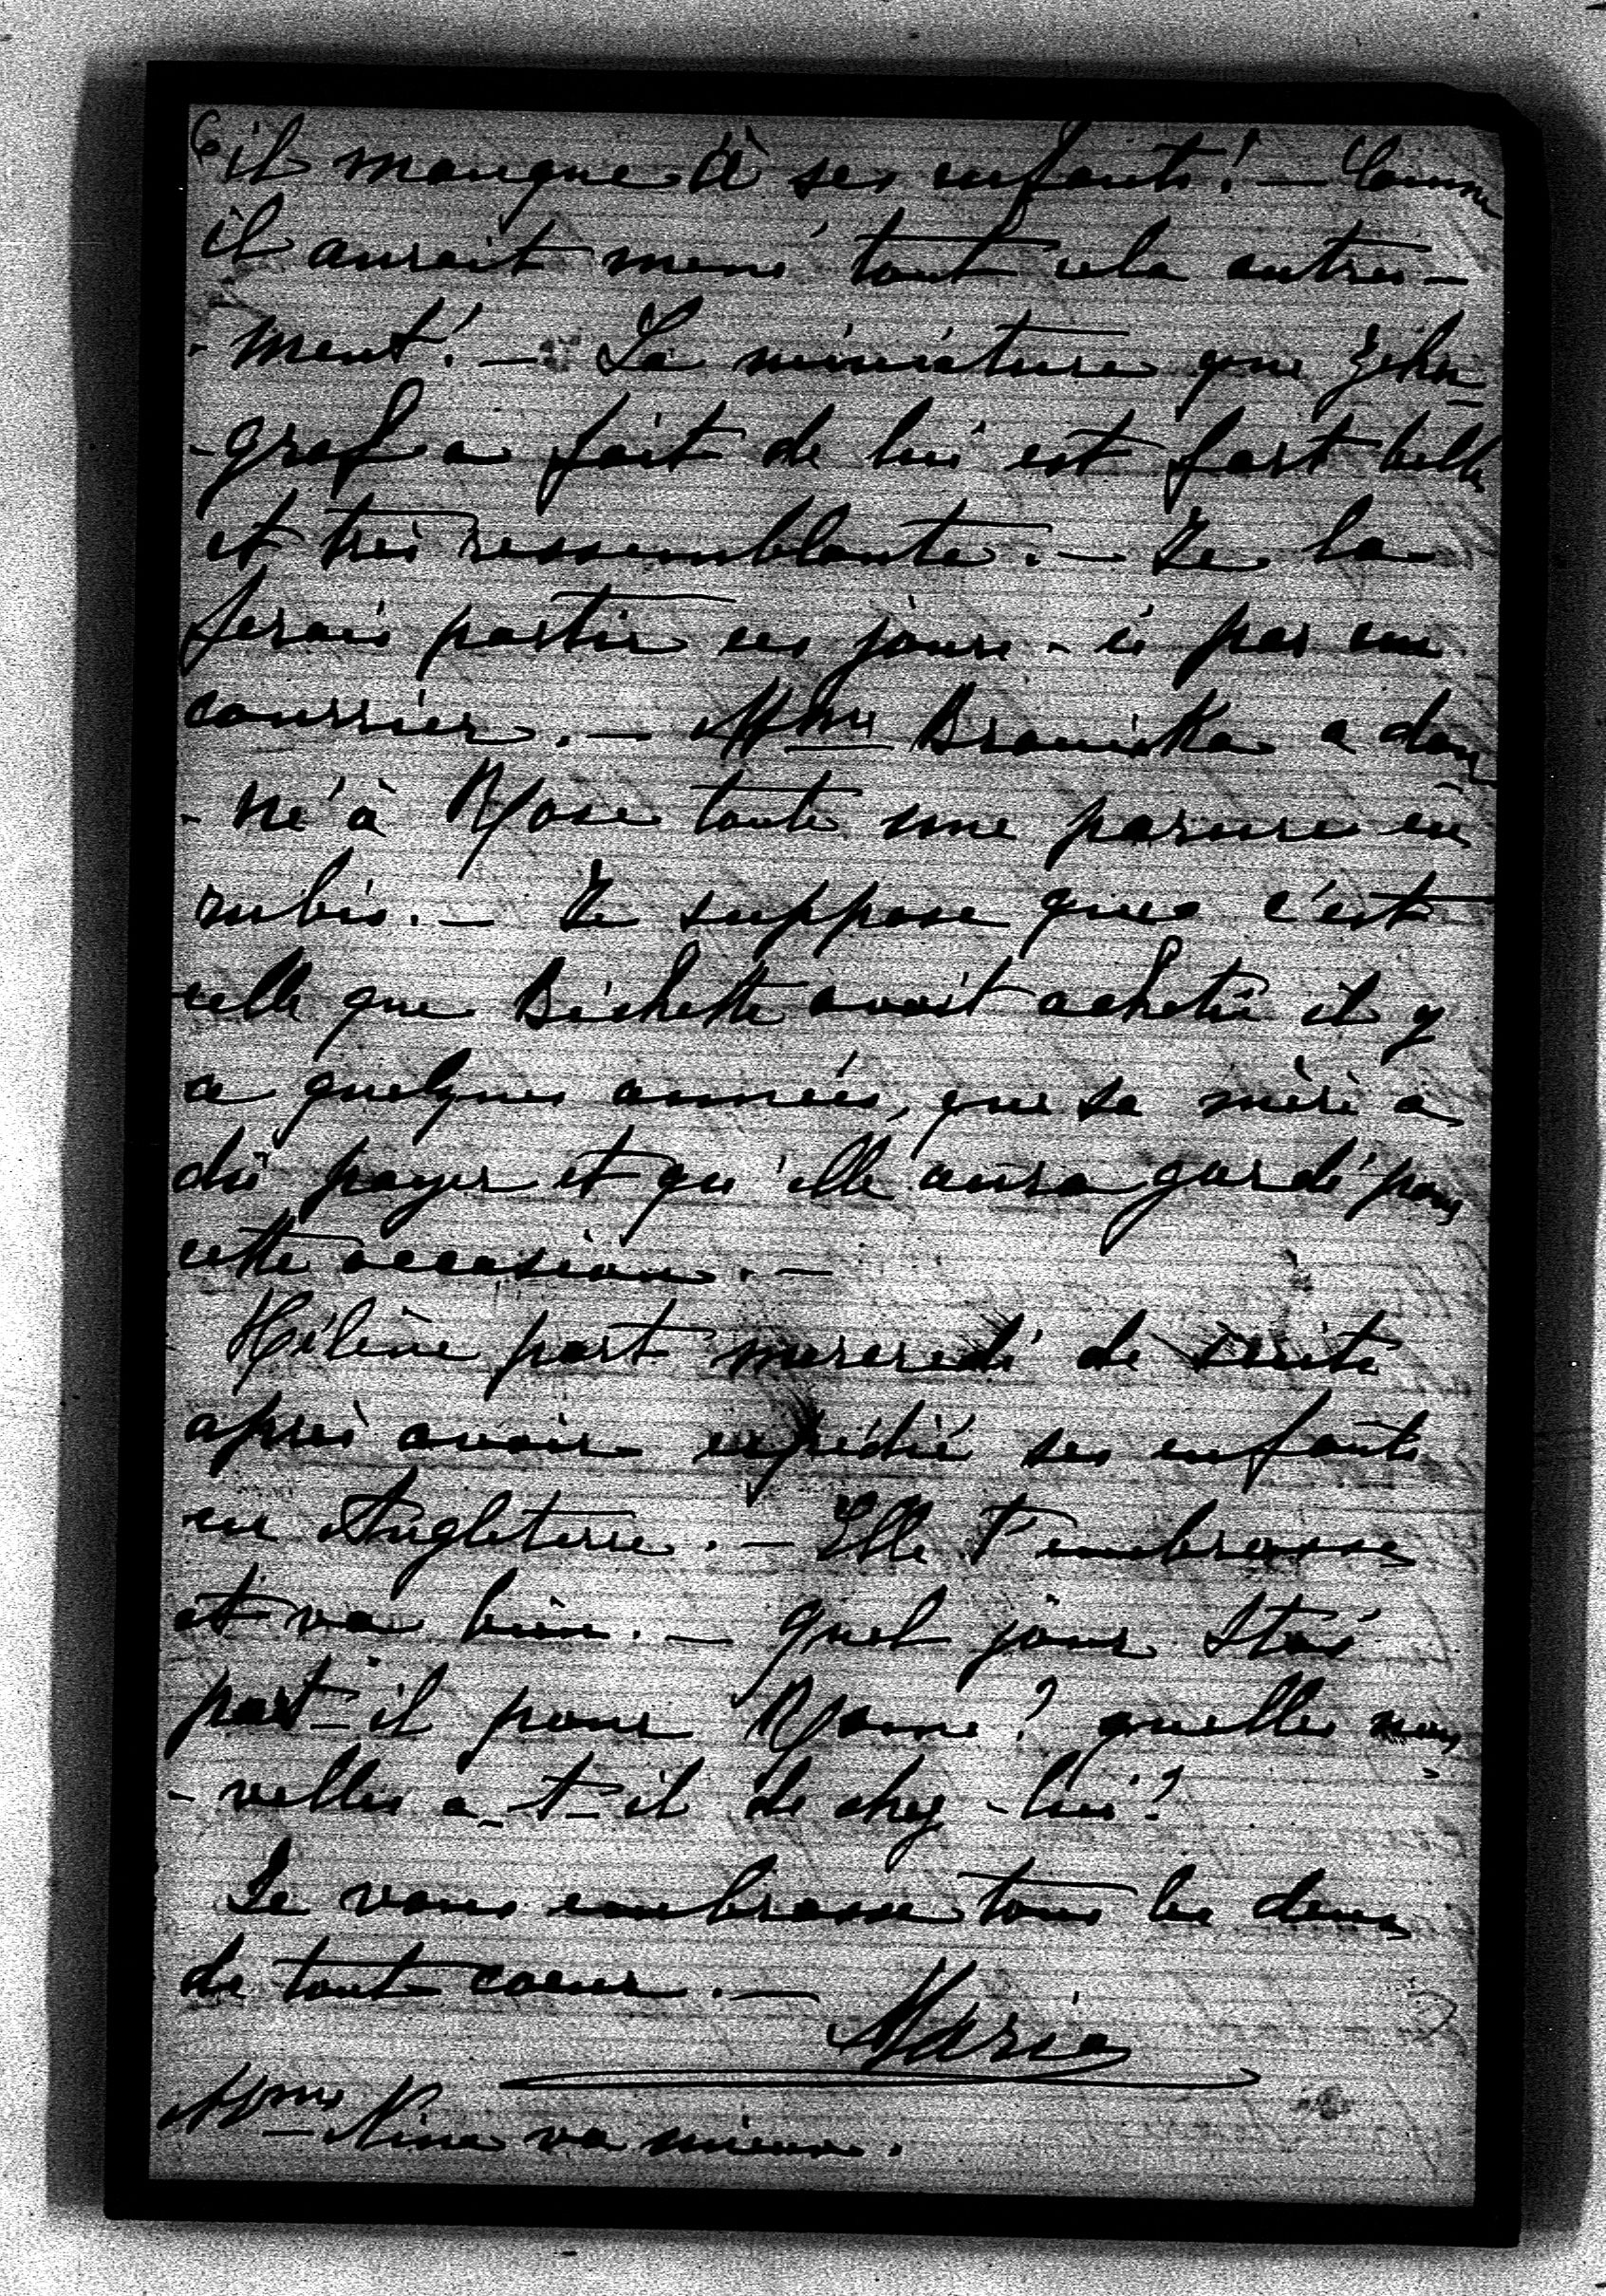 6 il manque à ses enfants! — Comme
il aurait mené tout cela autre-
-ment! — La miniature que Zehn-
-graf a fait de lui est fort belle
et très ressemblante. — Je la
ferais partir ces jours-ci par un
courrier. — Mme Branicka a don-
-né à Rose toute une parure en
rubis. — Je suppose que c'est
celle que Bichette avait acheté il y
a quelques années, que sa mère a
dû payer et qu'elle aura gardé pour
cette occasion. —
Hélène part mercredi de suite
après avoir expédié ses enfants
en Angleterre. — Elle t'embrasse
et va bien. — quel jour Stas
part-il pour Rome? quelles nou-
-velles a-t-il de chez-lui?
Je vous embrasse tous les deux
de tout coeur. — Marie
Mme Nina va mieux.